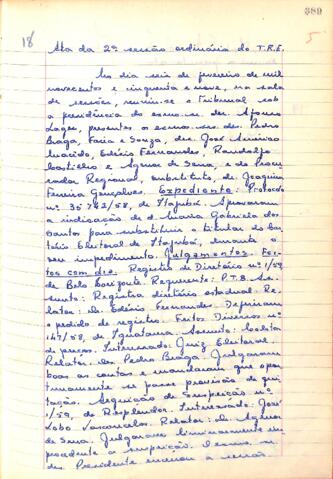 389
18
5
Ata da 2ª sessão ordinária do T.R.E.
No dia seis de fevereiro de mil
novecentos e cinquenta e nove, na sala
de sessões, reuniu-se o Tribunal sob
a presidência do exmo. sr. des. Afonso
Lages, presentes os exmos. srs. des. Pedro
Braga, Faria e Souza, drs. José
Macido, Edésio Fernandes,
Castilho e Agenor de Sena, e do Procu-
rador Regional, substituto, dr. Joaquim
Ferreira Gonçalves. Expediente: Protocolo
nº 35742/58, de Itajubá. Aprovaram
a indicação de d. Maria Gabriela dos
Santos para substituir o titular do Car-
tório Eleitoral de Itajubá, durante o
seu impedimento. Julgamentos. Fei-
tos com dia. Registro de Diretório nº 1/59,
de Belo Horizonte. Requerente: P.T.B. As-
sunto: Registro diretório estadual. Re-
lator: dr. Edésio Fernandes. Deferiram
o pedido de registro. Feitos Diversos nº
147/58, de Iguatama. Assunto:
Interessado: Juiz Eleitoral.
Relator: des. Pedro Braga. Julgaram
boas as contas e mandaram que opor-
tunamente se passe provisão de qui-
tação. Arguição de Suspeição nº
1/59, de Resplendor. Interessado: José
Lobo Vasconcelos. Relator: dr. Agenor
de Sena. Julgaram
a suspeição. O exmo. sr.
des. Presidente encerrou a sessão